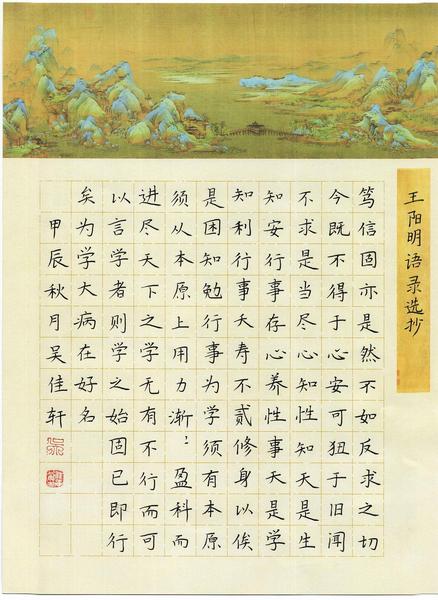 王阳明语录选抄
笃信固亦是然不如反求之切
今既不得于心安可狃于旧闻
不求是当尽心知性知天是生
知安行事存心养性事天是学
知利行事夭寿不贰修身以俟
是困知勉行事为学须有本原
须从本原上用力渐〻盈科而
进尽天下之学无有不行而可
以言学者则学之始固已即行
矣为学大病在好名
甲辰秋月吴佳轩